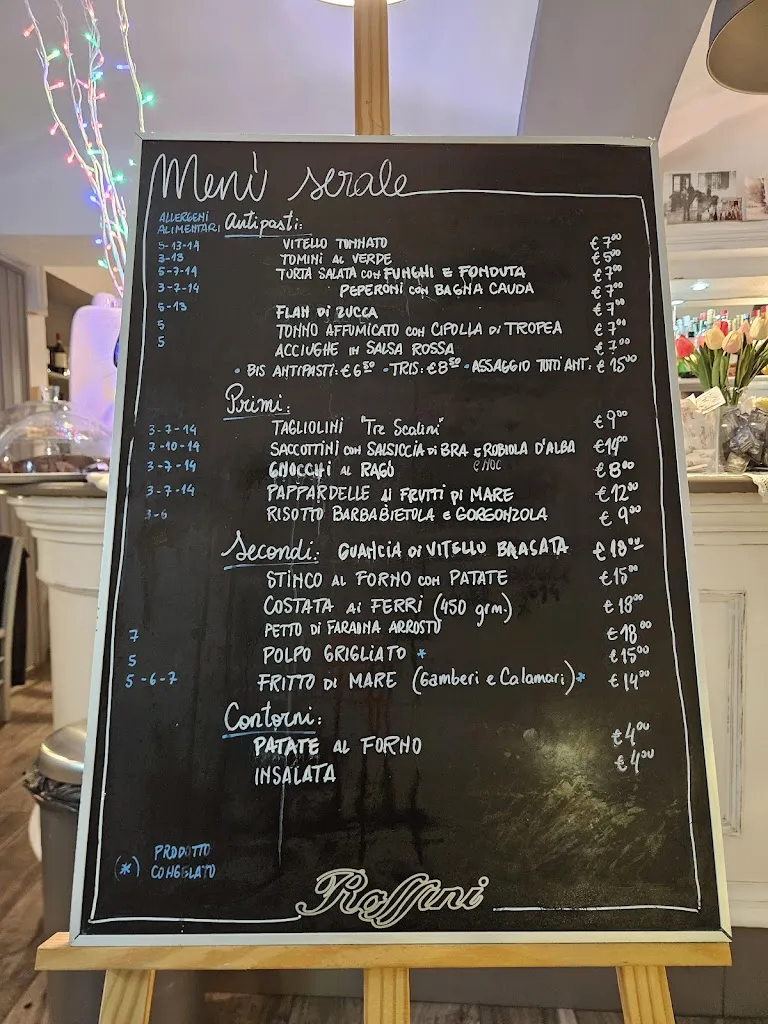 Menù serale
ALLERGENI
ALIMENTARI
Antipasti:
5-13-14 VITELLO TONNATO €7⁰⁰
3-13 TOMINI AL VERDE €5⁰⁰
5-7-14 TORTA SALATA con FUNGHI E FONDUTA €7⁰⁰
3-7-14 PEPERONI con BAGNA CAUDA €7⁰⁰
5-13 FLAN DI ZUCCA €7⁰⁰
5 TONNO AFFUMICATO con CIPOLLA di TROPEA €7⁰⁰
5 ACCIUGHE IN SALSA ROSSA €7⁰⁰
• BIS ANTIPASTI: €6⁵⁰ - TRIS: €8⁵⁰ - ASSAGGIO TUTTI ANT: €15⁰⁰
Primi:
3-7-14 TAGLIOLINI "Tre Scalini" €9⁰⁰
7-10-14 SACCOTTINI con SALSICCIA di BRA E ROBIOLA D'ALBA
3-7-14 GNOCCHI AL RAGÙ €8⁰⁰
3-7-14 PAPPARDELLE AI FRUTTI DI MARE €12⁰⁰
3-6 RISOTTO BARBABIETOLA E GORGONZOLA €9⁰⁰
Secondi: GUANCIA DI VITELLO BRASATA €18⁰⁰
STINCO AL FORNO con PATATE €15⁰⁰
COSTATA AI FERRI (450 grm.) €18⁰⁰
7 PETTO DI FARAONA ARROSTO €18⁰⁰
5 POLPO GRIGLIATO * €15⁰⁰
5-6-7 FRITTO DI MARE (Gamberi e Calamari)* €14⁰⁰
Contorni:
PATATE AL FORNO €4⁰⁰
INSALATA €4⁰⁰
(*) PRODOTTO
CONGELATO
Roffini